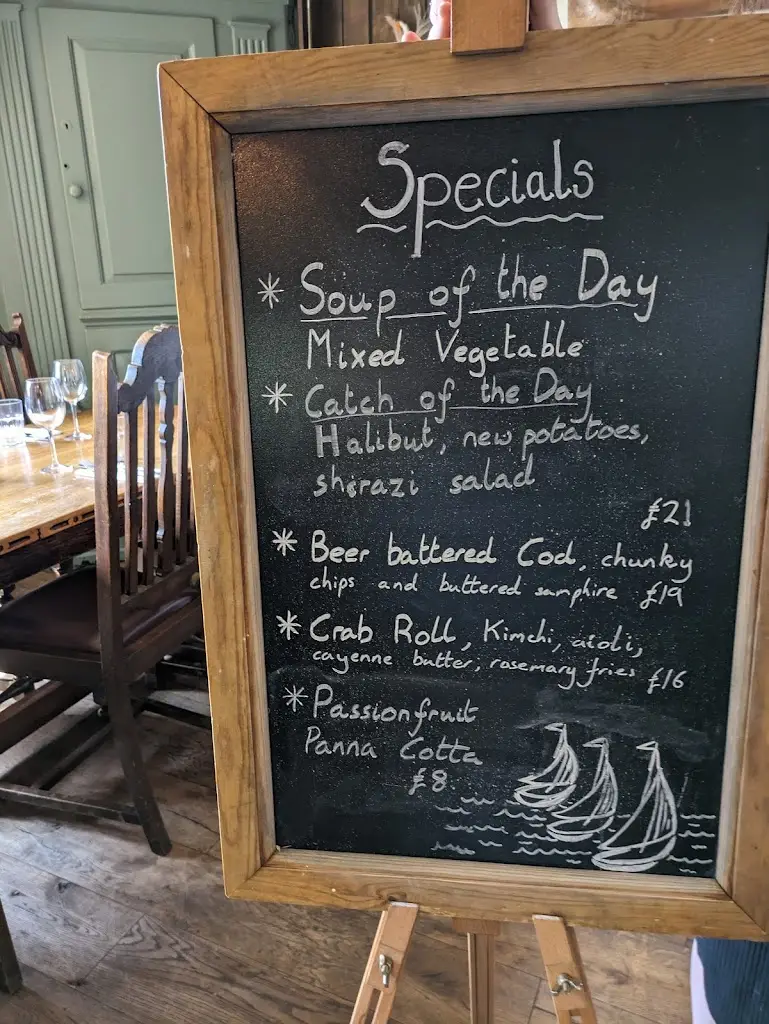 Specials
* Soup of the Day
Mixed Vegetable
* Catch of the Day
Halibut, new potatoes,
shirazi salad
£21
* Beer battered Cod, chunky
chips and buttered samphire £19
* Crab Roll, Kimchi, aioli,
cayenne butter, rosemary fries £16
* Passionfruit
Panna Cotta
£8